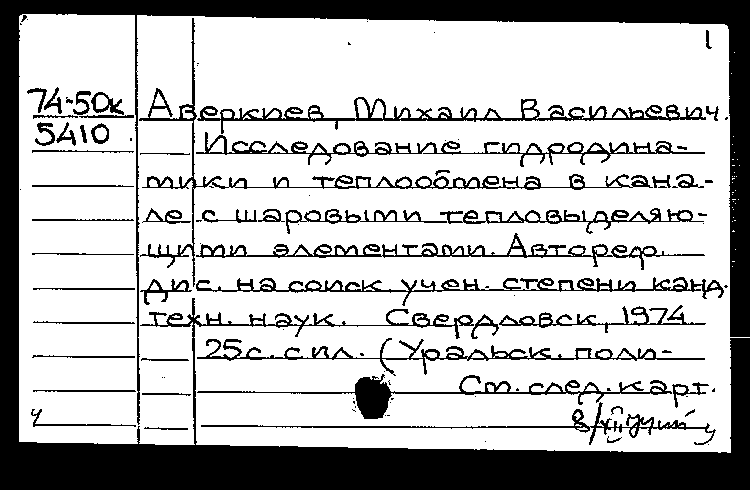 1
74-50к Аверкиев, Михаил Васильевич.
5410 Исследование гидродина-
мики и теплообмена в кана-
ле с шаровыми тепловыделяю-
щими элементами. Автореф.
дис. на соиск. учен. степени канд.
техн. наук. Свердловск, 1974.
25 с. с ил. (Уральск. поли-
См. след. карт.
ч 8/XII